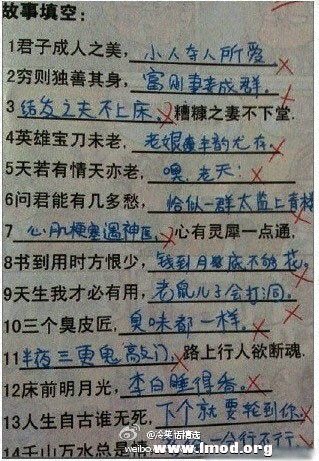 故事填空:
1君子成人之美, 小人夺人所爱。
2穷则独善其身, 富则妻妾成群。
3 结发之夫不上床, 糟糠之妻不下堂.
4英雄宝刀未老, 老娘风韵尤存.
5天若有情天亦老, 噢,老天:
6问君能有几多愁, 恰似一群太监上青楼
7 心肌梗塞遇神医, 心有灵犀一点通.
8书到用时方恨少, 钱到月底不够花。
9天生我才必有用, 老鼠儿子会打洞。
10三个臭皮匠, 臭味都一样。
11半夜三更鬼敲门, 路上行人欲断魂.
12床前明月光, 李白睡得香。
13人生自古谁无死, 下个就要轮到你
14千山万水总是 一分行不行.
@冷笑话精选
weibo.com/
www.lmod.org